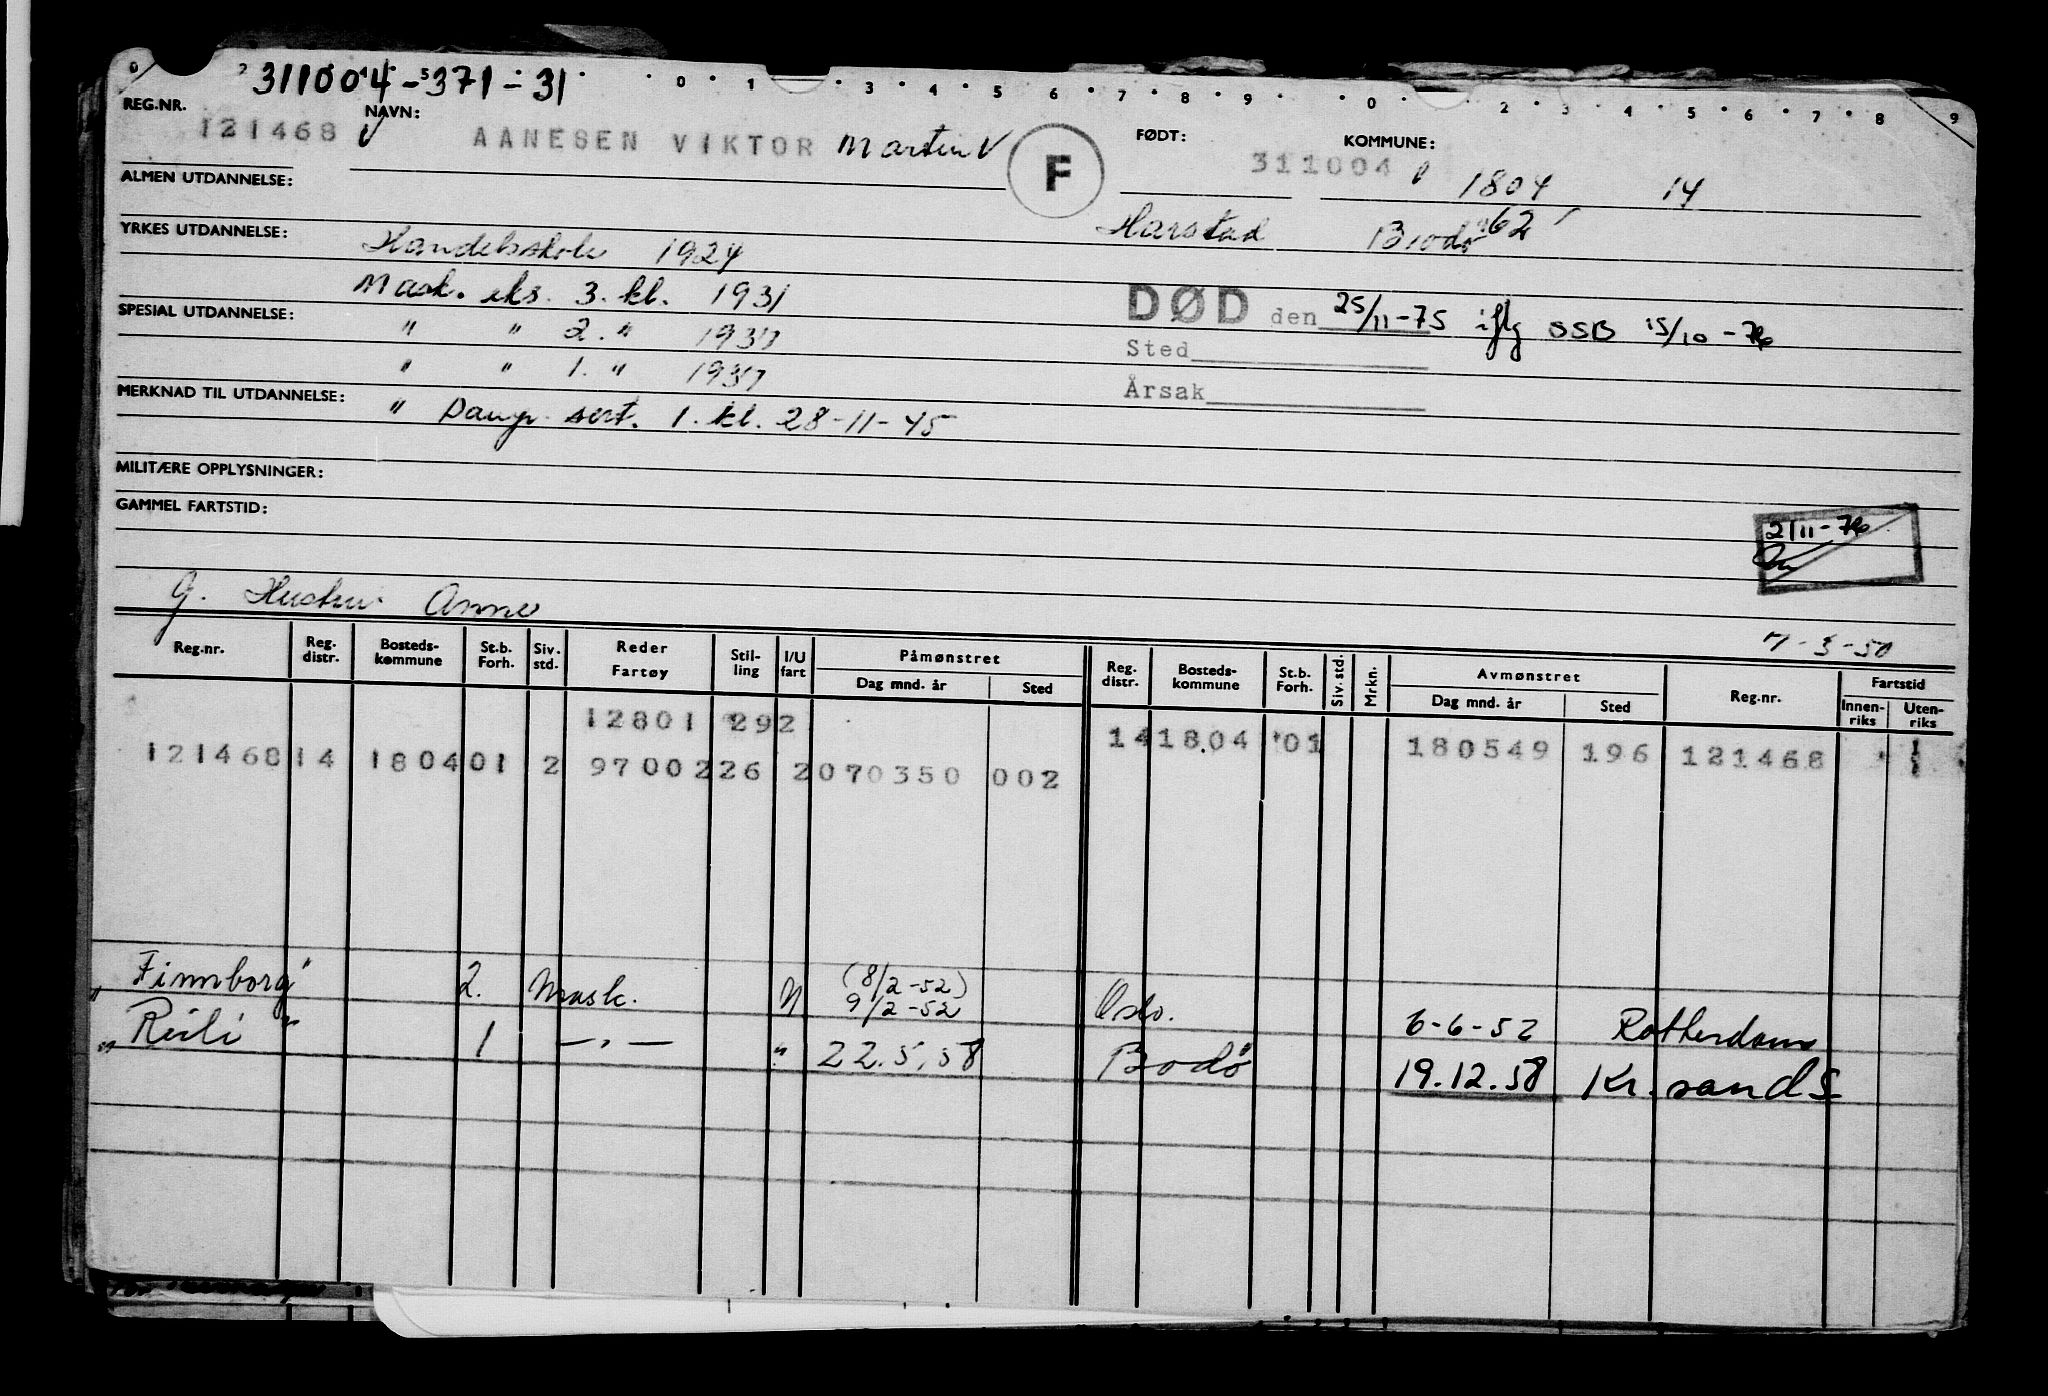 311004-371-31
REG.NR. NAVN: FØDT: KOMMUNE:
121468 AANESEN VIKTOR Martin F 311004 1804 14
ALMEN UTDANNELSE:
Harstad Bodø 62
YRKES UTDANNELSE: Handelsskole 1924
Mask. eks. 3. kl. 1931
DØD den 25/11-75 iflg SSB 15/10-76
SPESIAL UTDANNELSE: " " 2. " 1937
Sted
" " 1. " 1937
Årsak
MERKNAD TIL UTDANNELSE: " Damp. sert. 1. kl. 28-11-45
MILITÆRE OPPLYSNINGER:
GAMMEL FARTSTID:
2/11-76
G. Hustru Anne
7-3-50
Reg.nr. Reg. distr. Bosteds-kommune St.b. Forh. Siv. std. Reder Fartøy Stil-ling I/U fart Påmønstret Dag mnd. år Sted Reg. distr. Bosteds-kommune St.b. Forh. Siv. std. Mrkn. Avmønstret Dag mnd. år Sted Reg.nr. Fartstid Innen-riks Uten-riks
12801 292 14 1804 01 180549 196 121468
121468 14 1804 01 2 97002 226 2 070350 002
"Finnborg" 2. Mask. (8/2-52) 9/2-52 Oslo. 6-6-52 Rotterdam
"Reili" 1 —"— " 22.5.58 Bodø 19.12.58 Kr.sand S.